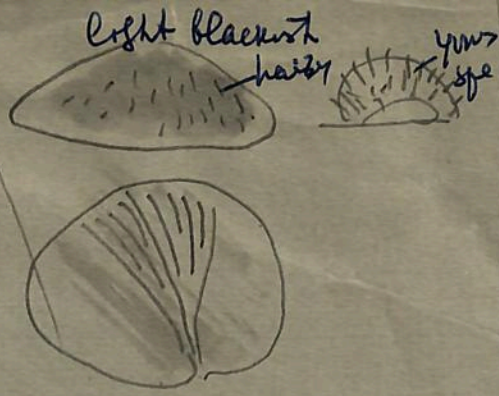 light blackish
hairy
young
spe